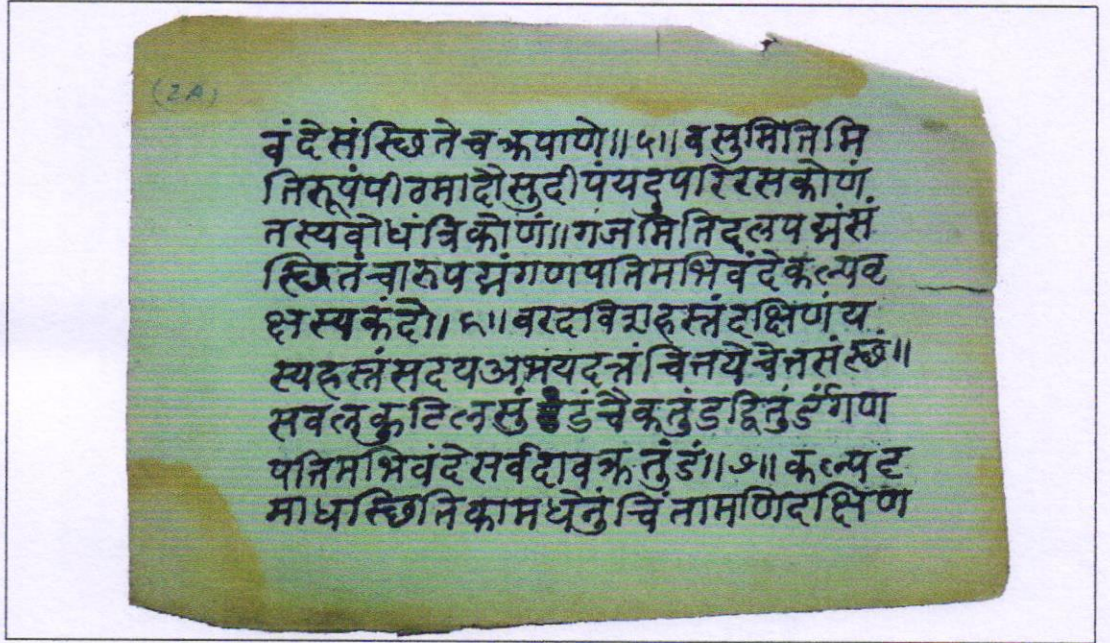 (2A)
वंदेसंस्छितेवक्रपाणे॥५॥वसुमितिमि
तिरूपंपीठमादौसुदीपंयदुपरिरसकोणं
तस्यवोधंत्रिकोणं॥गजमितिदलपद्मंसं
स्छितंचारुपद्मंगणपतिमभिवंदेकल्पवृ
क्षस्यकंदौ॥६॥वरदविराहस्तंदक्षिणंय
स्यहस्तंसदयअभयदत्तंचित्तयेचेत्तसंस्छं॥
सवलकुटिलसुंडंचैकतुंडद्वितुंडंगण
पतिमभिवंदेसर्वदावक्रतुंडं॥७॥कल्पदृ
माधस्छितिकामधेनुंचिंतामणिदक्षिण